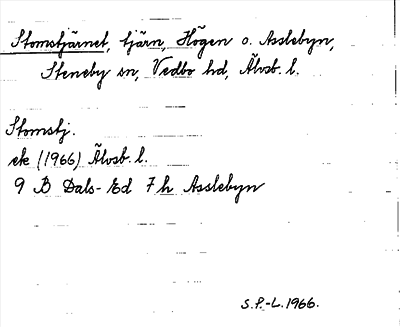 Stomstjärnet, tjärn, Högen o. Asslebyn,
Steneby sn, Vedbo hd, Älvsb. l.
Stomstj.
ek (1966) Älvsb. l.
9 B Dals-Ed 7 h Asslebyn
S.P.-L. 1966.